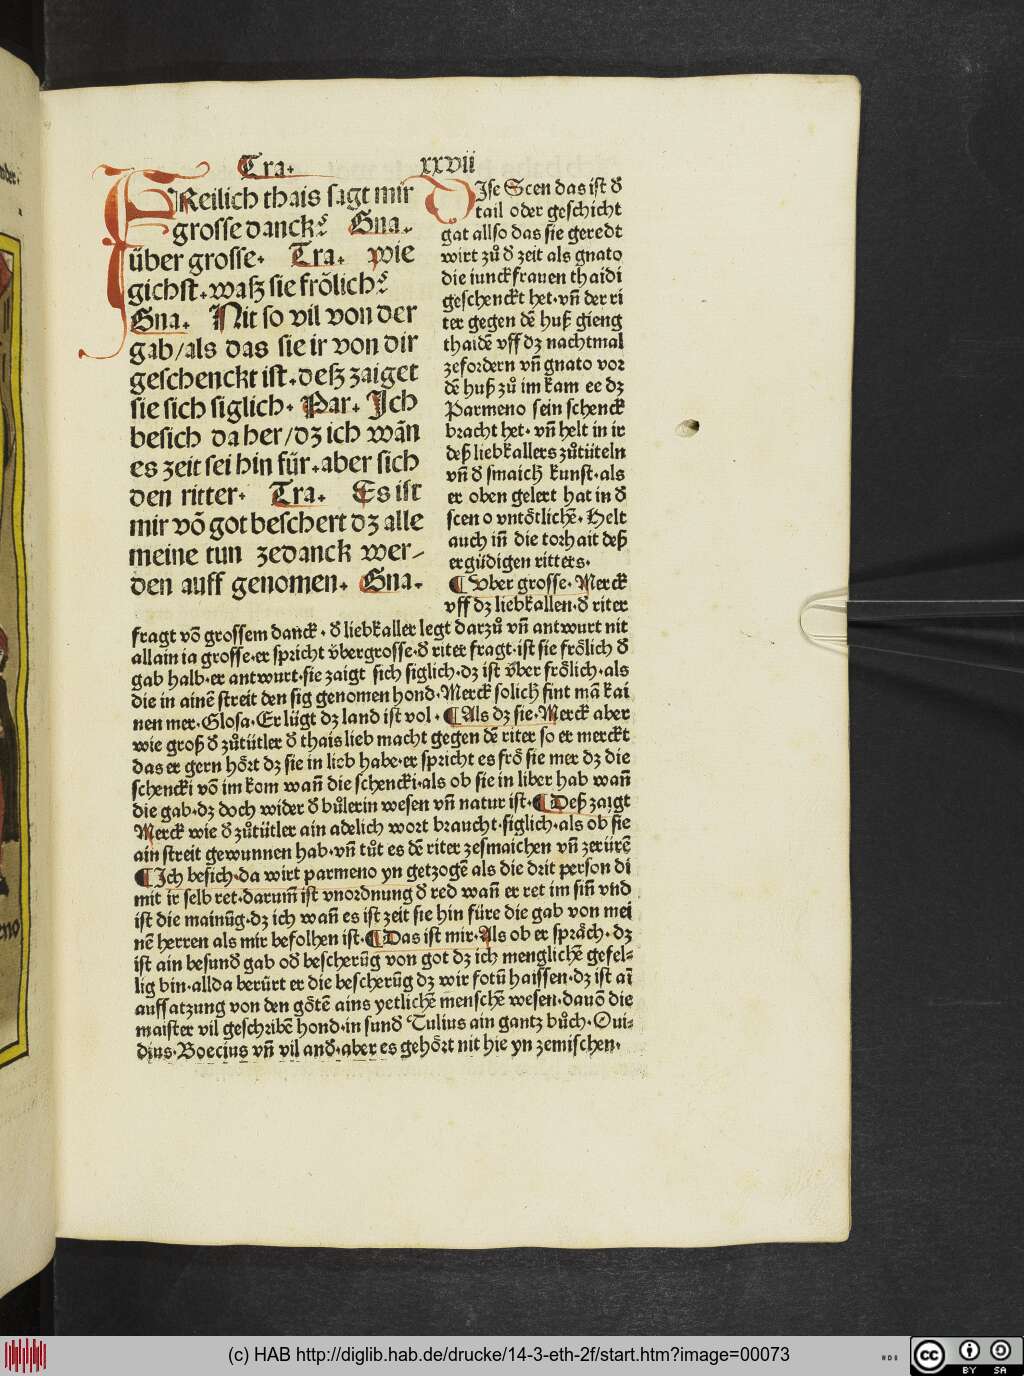 Tra.
xxvii
FReilich thais sagt mir
grosse danck? Gna.
über grosse. Tra. wie
gichst.waß sie frölich?
Gna. Nit so vil von der
gab/als das sie ir von dir
geschenckt ist.deß zaiget
sie sich siglich. Par. Ich
besich da her/dz ich wān
es zeit sei hin für.aber sich
den ritter. Tra. Es ist
mir vō got beschert dz alle
meine tun zedanck wer/
den auff genomen. Gna.
DIse Scen das ist d̄
tail oder geschicht
gat allso das sie geredt
wirt zů d̄ zeit als gnato
die iunckfrauen thaidi
geschenckt het.vn̄ der ri
ter gegen dē huß gieng
thaidē vff dz nachtmal
zefordern vn̄ gnato vor
dē huß zů im kam ee dz
Parmeno sein schenck
bracht het. vn̄ helt in ir
deß liebkallers zůtüteln
vn̄ d̄ smaich kunst.als
er oben gelert hat in d̄
scen o vntötlichē. Helt
auch in̄ die torhait deß
ergüdigen ritters.
¶ Vber grosse. Merck
vff dz liebkallen.d̄ riter
fragt vō grossem danck. d̄ liebkaller legt darzů vn̄ antwurt nit
allain ia grosse.er spricht v̈bergrosse.d̄ riter fragt.ist sie frölich d̄
gab halb.er antwurt.sie zaigt sich siglich.dz ist v̈ber frölich.als
die in ainē streit den sig genomen hond.Merck solich sint mā kai
nen mer.Glosa.Er lügt dz land ist vol. ¶ Als dz sie.Merck aber
wie groß d̄ zůtütler d̄ thais lieb macht gegen dē riter so er merckt
das er gern hört dz sie in lieb habe.er spricht es frö sie mer dz die
schencki vō im kom wan̄ die schencki.als ob sie in liber hab wan̄
die gab.dz doch wider d̄ bůlerin wesen vn̄ natur ist.¶ Deß zaigt
Merck wie d̄ zůtütler ain adelich wort braucht.siglich.als ob sie
ain streit gewunnen hab.vn̄ tůt es dē riter zesmaichen vn̄ zerürē
¶ Ich besich.da wirt parmeno yn getzogē als die drit person di
mit ir selb ret.darum̄ ist vnordnung d̄ red wan̄ er ret im sin̄ vnd
ist die mainūg.dz ich wan̄ es ist zeit sie hin füre die gab von mei
nē herren als mir befolhen ist.¶ Das ist mir.Als ob er spräch.dz
ist ain besund̄ gab od̄ bescherūg von got dz ich menglichē gefel⸗
lig bin.allda berürt er die bescherūg dz wir fotū haissen.dz ist aī
auffsatzung von den götē ains yetlichē menschē wesen.dauō die
maister vil geschribē hond.in sund̄ Tulius ain gantz bůch.Oui⸗
dius.Boecius vn̄ vil and̄.aber es gehört nit hie yn zemischen.
(c) HAB http://diglib.hab.de/drucke/14-3-eth-2f/start.htm?image=00073
cc BY SA